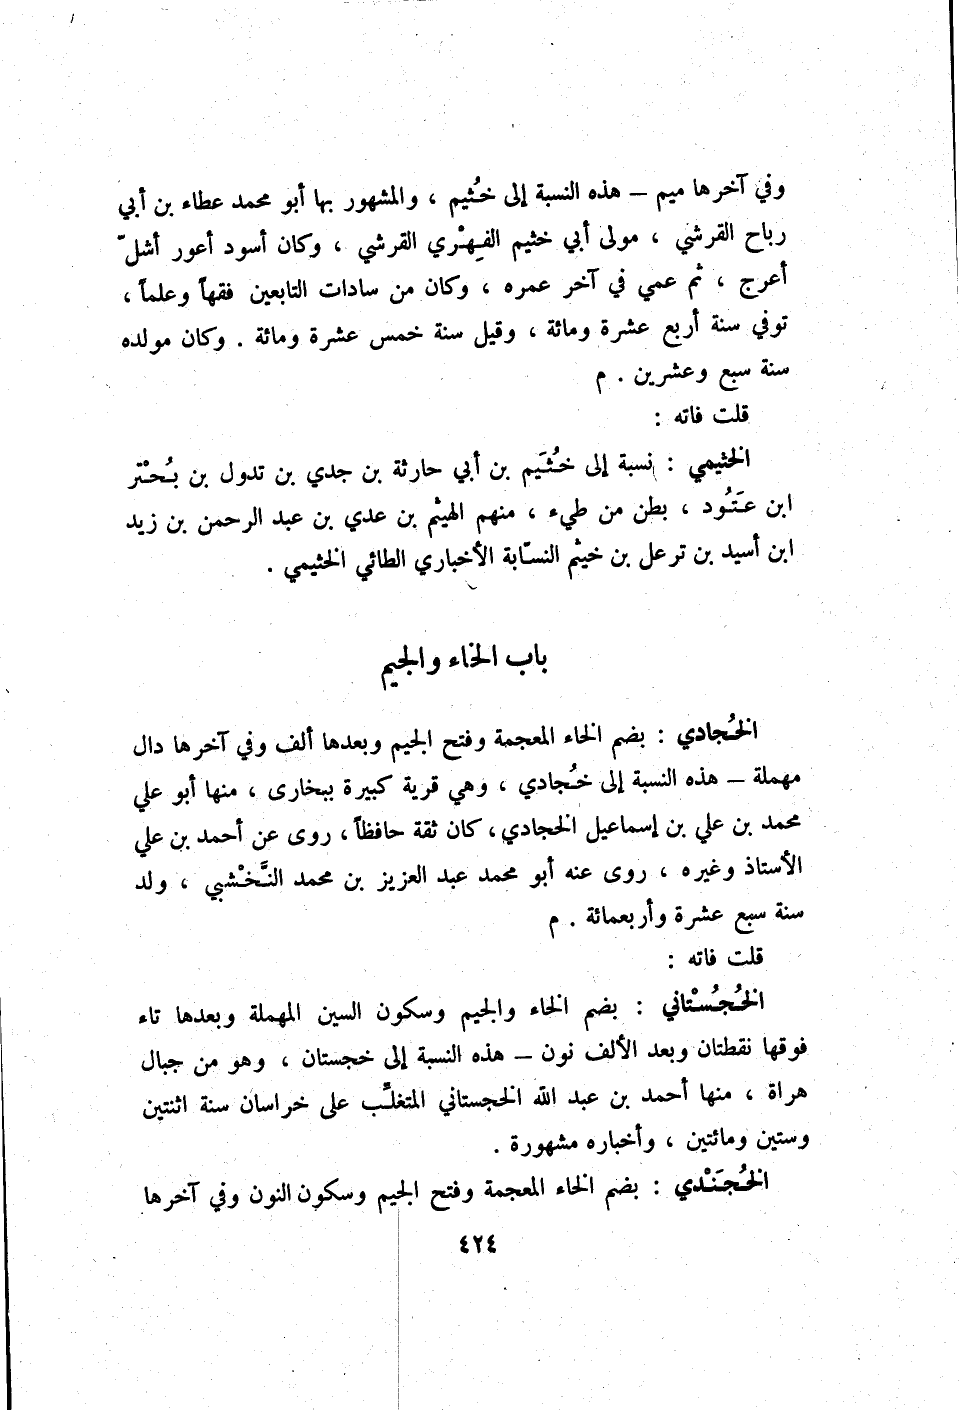 وفي آخرها ميم – هذه النسبة إلى خُثيم ، والمشهور بها أبو محمد عطاء بن أبي
رباح القرشي ، مولى أبي خثيم الفِهْري القرشي ، وكان أسود أعور أشلّ
أعرج ، ثم عمي في آخر عمره ، وكان من سادات التابعين فقهاً وعلماً ،
توفي سنة أربع عشرة ومائة ، وقيل سنة خمس عشرة ومائة . وكان مولده
سنة سبع وعشرين . م
قلت فاته :
الخثيمي : نسبة إلى خُثَيم بن أبي حارثة بن جدي بن تدول بن بُحْتر
ابن عَتُود ، بطن من طيء ، منهم الهيثم بن عدي بن عبد الرحمن بن زيد
ابن أسيد بن ترعل بن خيثم النسّابة الأخباري الطائي الخثيمي .
باب الخاء والجيم
الخُجادي : بضم الخاء المعجمة وفتح الجيم وبعدها ألف وفي آخرها دال
مهملة – هذه النسبة إلى خُجادي ، وهي قرية كبيرة ببخارى ، منها أبو علي
محمد بن علي بن إسماعيل الخجادي، كان ثقة حافظاً ، روى عن أحمد بن علي
الأستاذ وغيره ، روى عنه أبو محمد عبد العزيز بن محمد النَّخْشبي ، ولد
سنة سبع عشرة وأربعمائة . م
قلت فاته :
الخُجُسْتاني : بضم الخاء والجيم وسكون السين المهملة وبعدها تاء
فوقها نقطتان وبعد الألف نون – هذه النسبة إلى خجستان ، وهو من جبال
هراة ، منها أحمد بن عبد الله الخجستاني المتغلّب على خراسان سنة اثنتين
وستين ومائتين ، وأخباره مشهورة .
الخُجَنْدي : بضم الخاء المعجمة وفتح الجيم وسكون النون وفي آخرها
٤٢٤